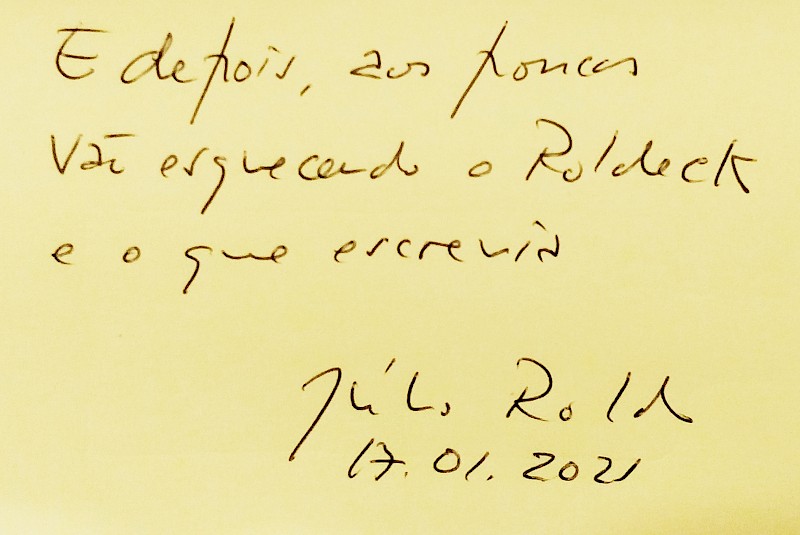 E depois, aos poucos
Vão esquecendo o Roldeck
e o que escrevia
Júlio Rold
17.01.2021